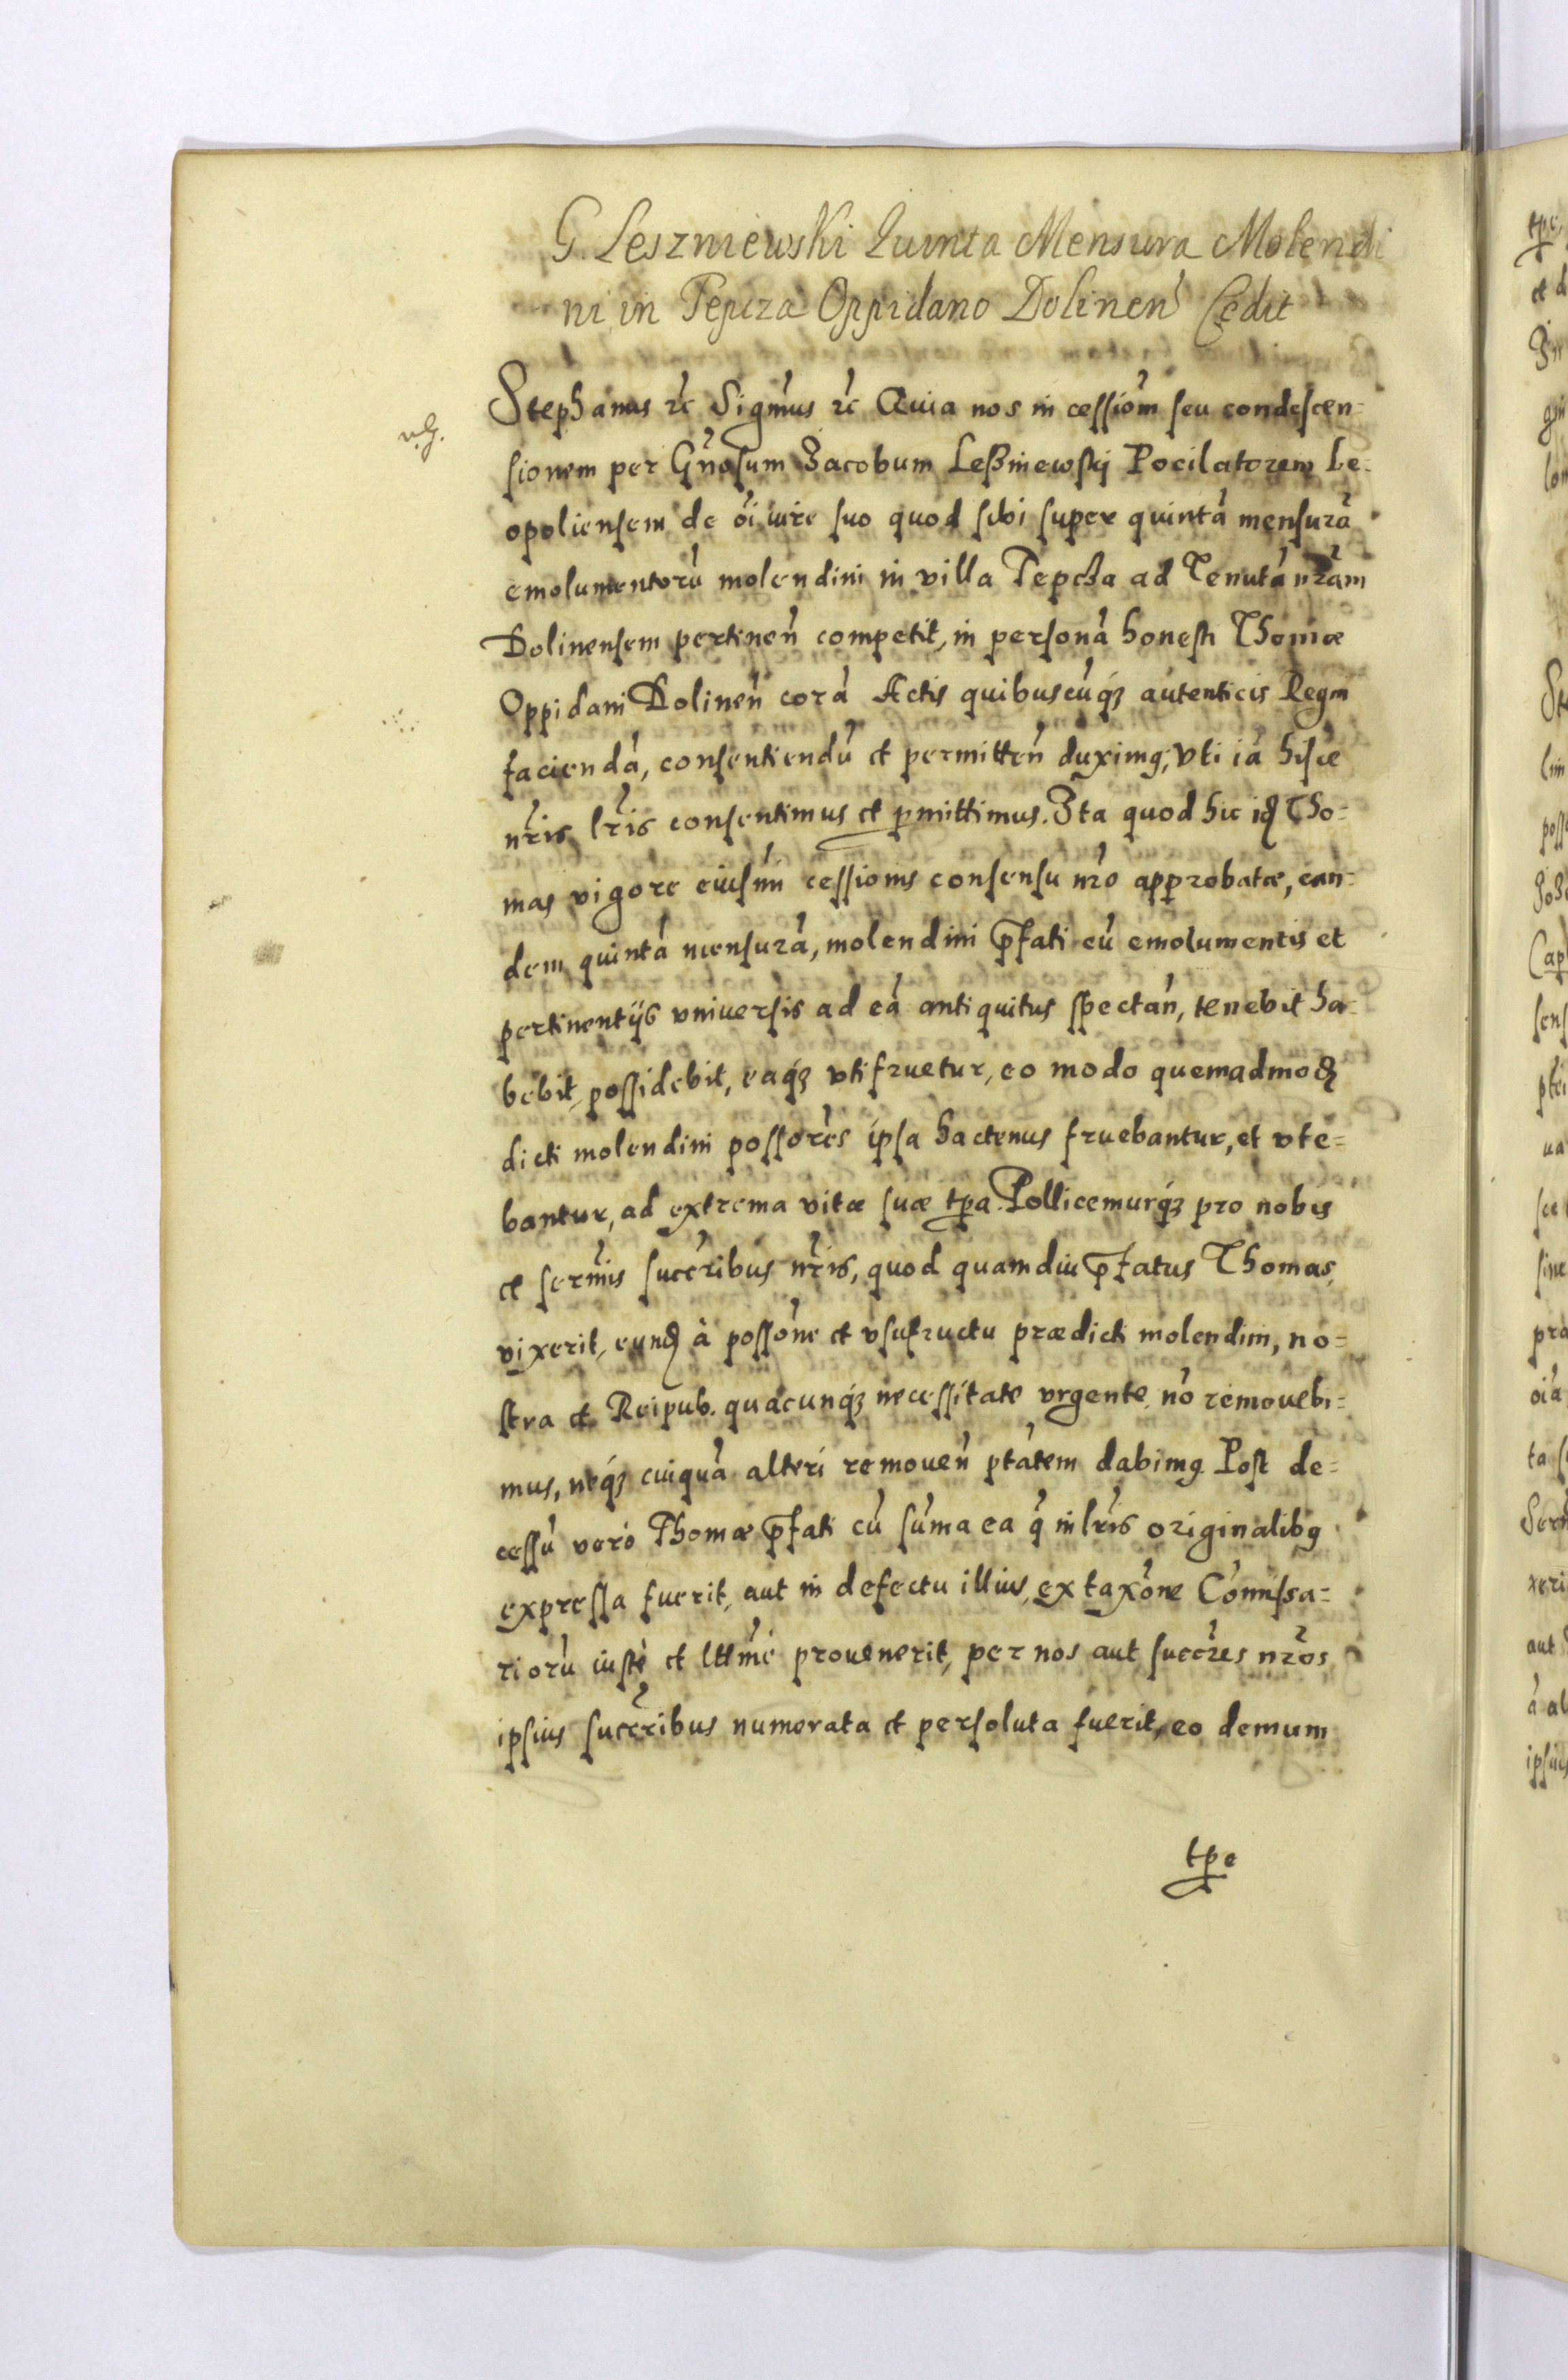 G. Leszniewski Quinta Mensura Molendi
ni in Tepcza Oppidano Dolinen̄ Cedit
Stephanus ꝛc̃ Sigm̃us ꝛc̃ Quia nos in cessiōm seu condescen=
sionem per Gñosum Jacobum Leßniewskj Pocilatorem Le=
opoliensem de oĩ iure suo quod sibi super quintā mensurā
emolumentorū molendini in villa Tepcza ad Tenutā nr̃am
Dolinensem pertinen̄ competit, in personā honesti Thomæ
Oppidani Dolinen̄ corā Actis quibuscūqꝫ autenticis Regni
faciendā, consentiendū et permitten̄ duximꝰ, vti iā hisce
nr̃is lr̃is consentimus et ꝑmittimus. Ita quod hic idꝫ Tho=
mas vigore eiusm̄i cessionis consensu nr̃o approbatæ, ean=
dem quintā mensurā, molendini p̃fati cū emolumentis et
pertinentijs vniuersis ad eā antiquitus spectan̄, tenebit ha=
bebit, possidebit, eaqꝫ vti fruetur, eo modo quemadmodꝫ
dicti molendini possor̃es ipsa hactenus fruebantur, et vte=
bantur, ad extrema vitæ suæ tꝑa. Pollicemurqꝫ pro nobis
et serm̃is succr̃ibus nr̃is, quod quamdiu p̃fatus Thomas
vixerit, eundꝫ à possõne et vsufructu prædicti molendini, no=
stra et Reipub. quacunqꝫ necessitate vrgente, nō remouebi=
mus, neqꝫ cuiquā alteri remouen̄ ptãtem dabimꝰ Post de=
cessū vero Thomæ p̃fati cū sūma ea q̃ in lr̃is originalibꝰ
expressa fuerit, aut in defectu illius, ex taxõne Com̃issa=
riorū iustè et lttm̃è prouenerit, per nos aut succr̃es nr̃os
ipsius succr̃ibus numerata et persoluta fuerit, eo demum
tꝑe